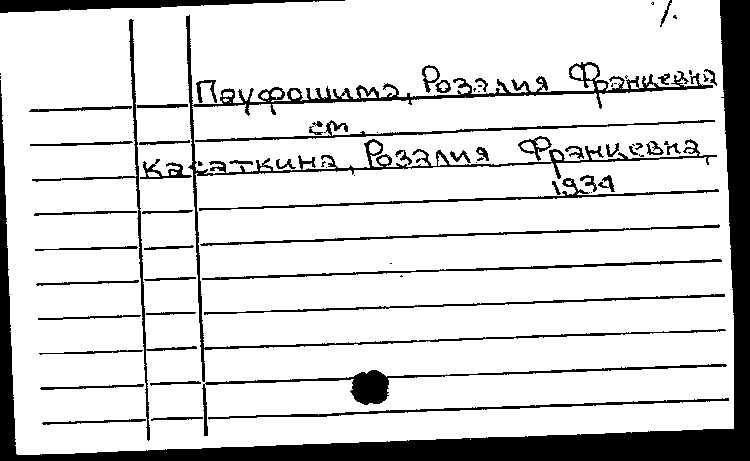 Пауфошима, Розалия Францевна
см.
Касаткина, Розалия Францевна,
1934